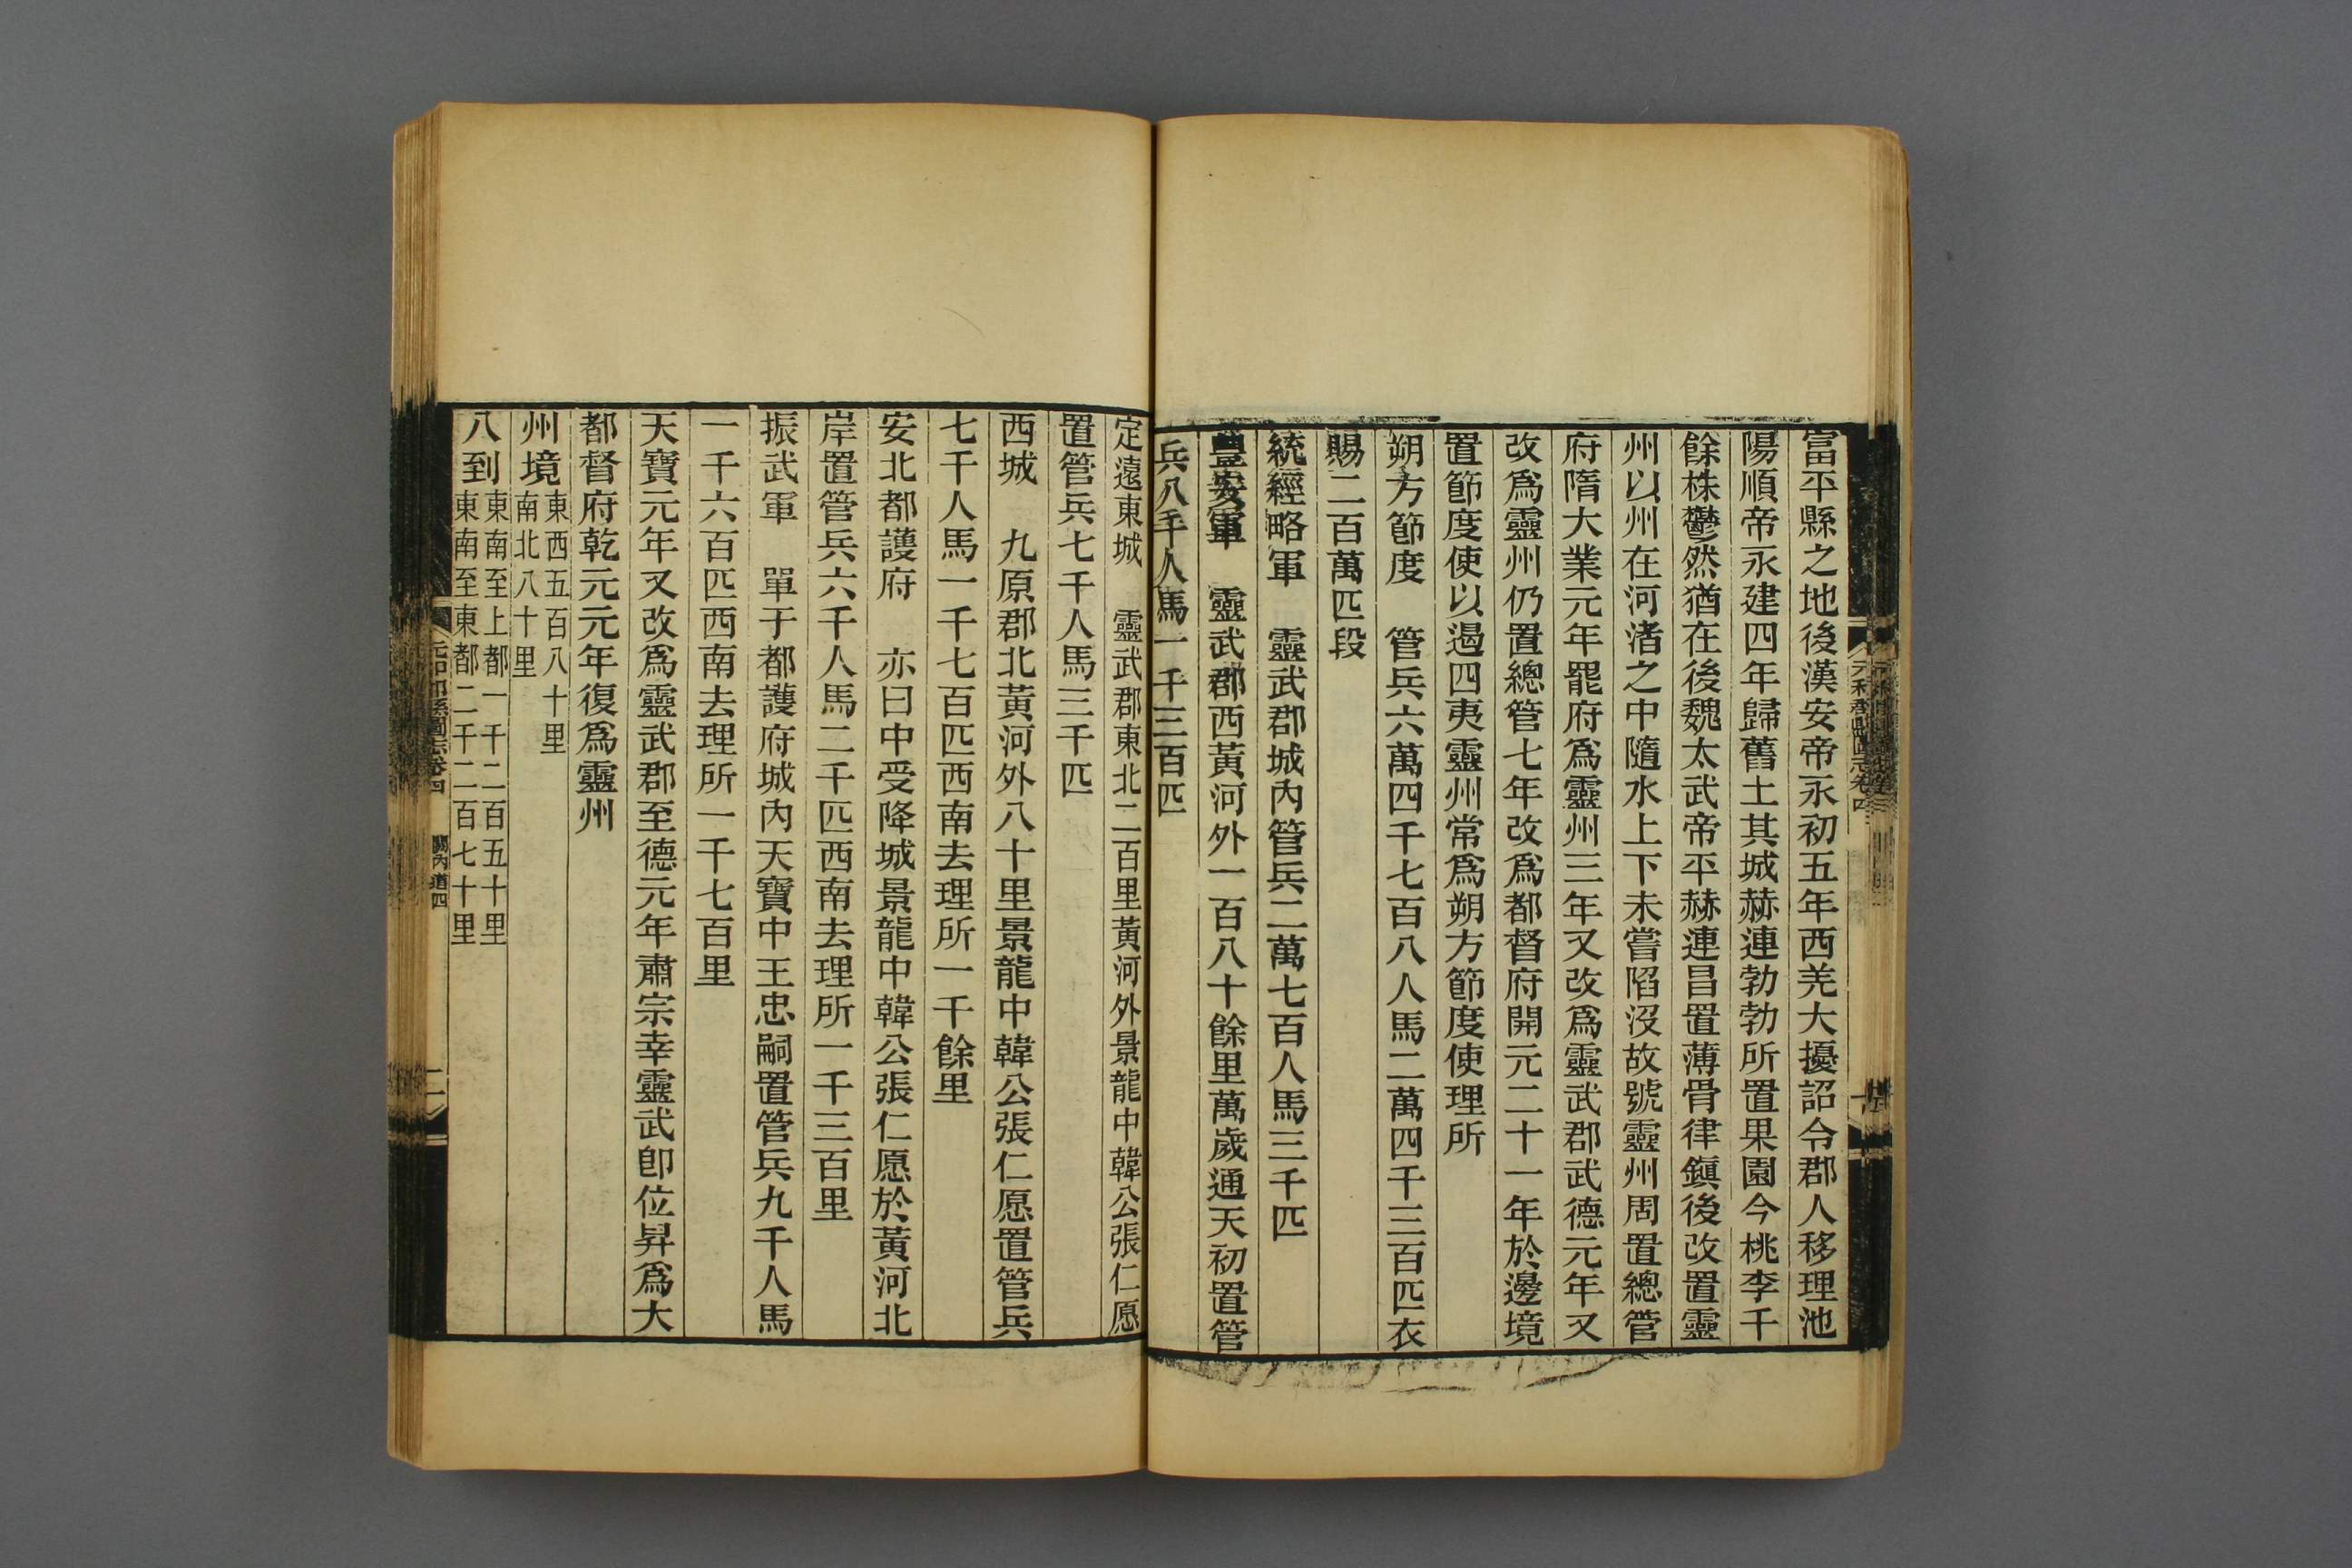 富平縣之地後漢安帝永初五年西羌大擾詔令郡人移理池
陽順帝永建四年歸舊土其城赫連勃勃所置果園今桃李千
餘株鬱然猶在後魏太武帝平赫連昌置薄骨律鎭後改置靈
州以州在河渚之中隨水上下未嘗陷沒故號靈州周置總管
府隋大業元年罷府爲靈州三年又改爲靈武郡武德元年又
改爲靈州仍置總管七年改爲都督府開元二十一年於邊境
置節度使以遏四夷靈州常爲朔方節度使理所
朔方節度　管兵六萬四千七百八人馬二萬四千三百匹衣
賜二百萬匹段
統經略軍　靈武郡城內管兵二萬七百人馬三千匹
豐安軍　靈武郡西黃河外一百八十餘里萬歲通天初置管
兵八千人馬一千三百匹
定遠東城　靈武郡東北二百里黃河外景龍中韓公張仁愿
置管兵七千人馬三千匹
西城　九原郡北黃河外八十里景龍中韓公張仁愿置管兵
七千人馬一千七百匹西南去理所一千餘里
安北都護府　亦曰中受降城景龍中韓公張仁愿於黃河北
岸置管兵六千人馬二千匹西南去理所一千三百里
振武軍　單于都護府城內天寶中王忠嗣置管兵九千人馬
一千六百匹西南去理所一千七百里
天寶元年又改爲靈武郡至德元年肅宗幸靈武卽位昇爲大
都督府乾元元年復爲靈州
州境 東西五百八十里
南北八十里
八到 東南至上都一千二百五十里
東南至東都二千二百七十里
元和郡縣圖志卷四 關內道四
二